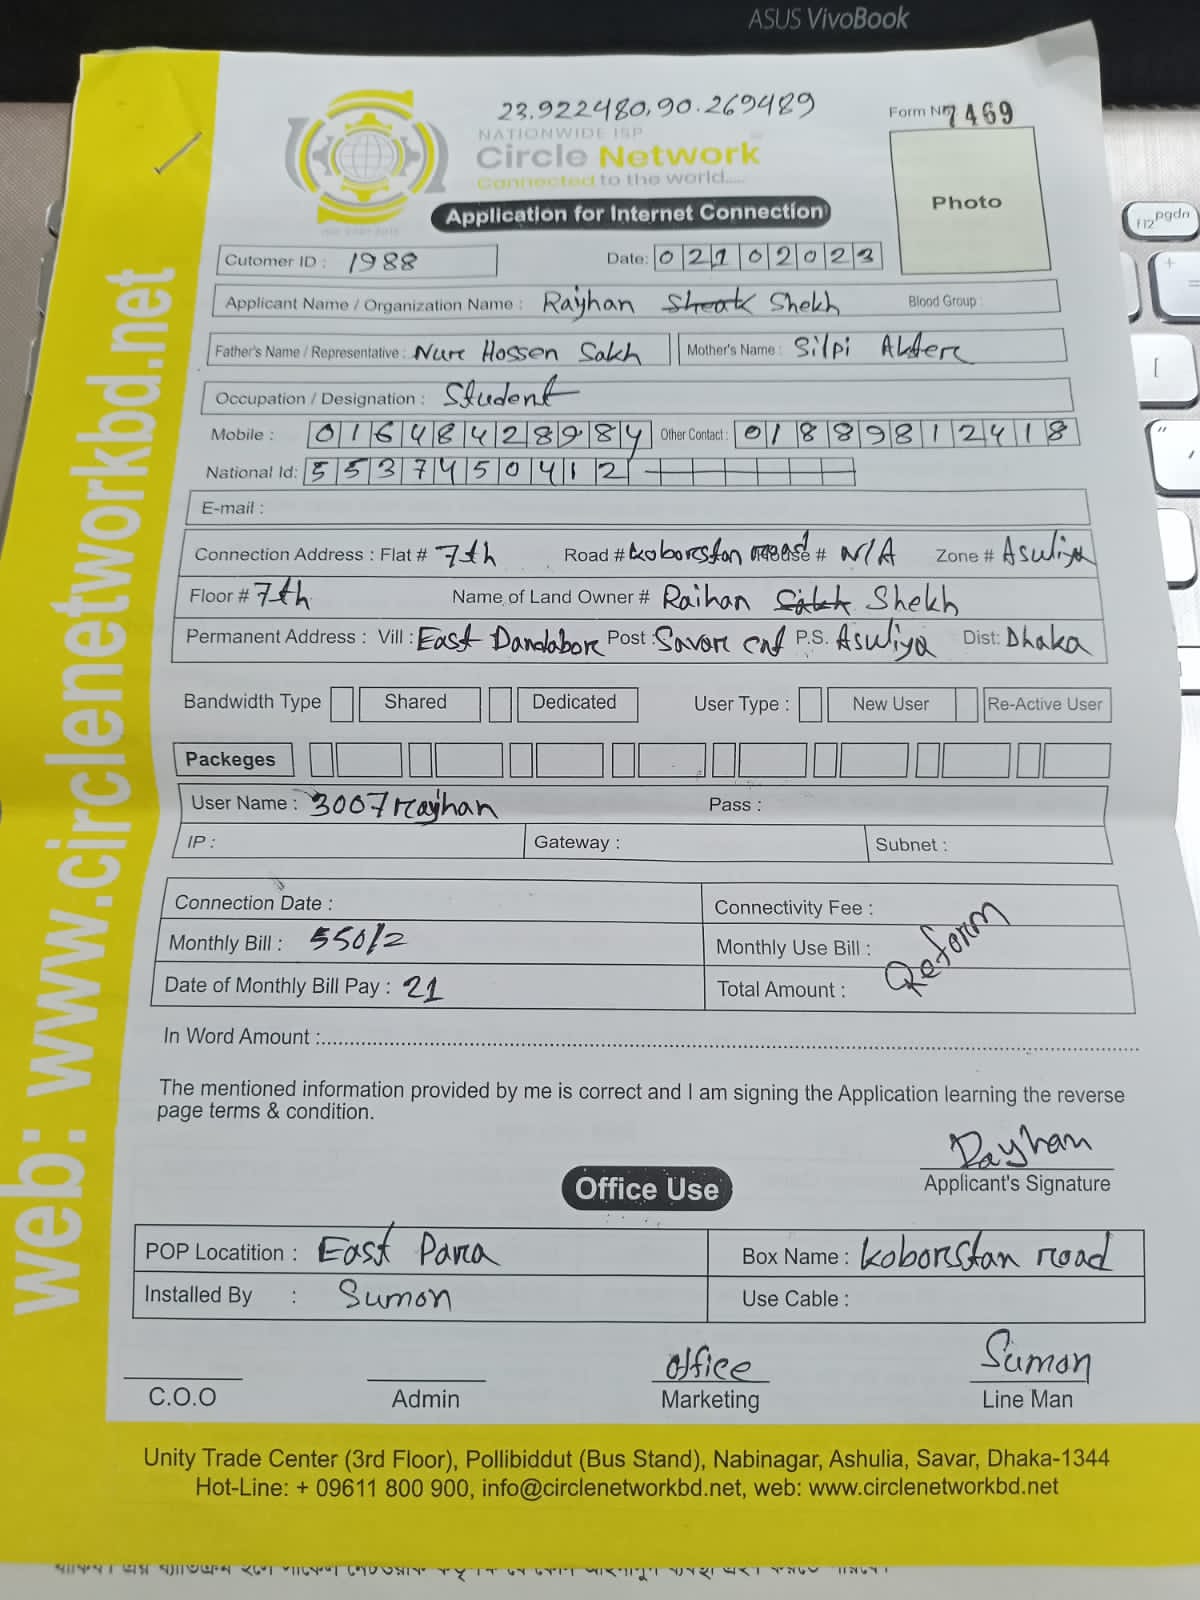 ASUS VivoBook
23.922480, 90.269489
Form No 7469
NATIONWIDE ISP
Circle Network
Connected to the world.....
Photo
Application for Internet Connection
Cutomer ID : 1988 Date: 02102023
Applicant Name / Organization Name : Rayhan Sheak Shekh Blood Group :
Father's Name / Representative : Nure Hossen Sakh Mother's Name : Silpi Aktere
Occupation / Designation : Student
Mobile : 01648428984 Other Contact : 01889812418
National Id: 5537450412
E-mail :
Connection Address : Flat # 7th Road # koborstan road House # N/A Zone # Asuliya
Floor # 7th Name of Land Owner # Raihan Shekh
Permanent Address : Vill : East Dandabore Post : Savar cnt P.S. Asuliya Dist: Dhaka
Bandwidth Type Shared Dedicated User Type : New User Re-Active User
Packeges
User Name : 3007rayhan Pass :
IP : Gateway : Subnet :
Connection Date : Connectivity Fee :
Monthly Bill : 550/2 Monthly Use Bill :
Reform
Date of Monthly Bill Pay : 21 Total Amount :
In Word Amount :
The mentioned information provided by me is correct and I am signing the Application learning the reverse
page terms & condition.
Rayhan
Applicant's Signature
Office Use
POP Locatition : East Para Box Name : koborstan road
Installed By : Sumon Use Cable :
office Sumon
C.O.O Admin Marketing Line Man
Unity Trade Center (3rd Floor), Pollibiddut (Bus Stand), Nabinagar, Ashulia, Savar, Dhaka-1344
Hot-Line: + 09611 800 900, info@circlenetworkbd.net, web: www.circlenetworkbd.net
web: www.circlenetworkbd.net
pgdn
f12